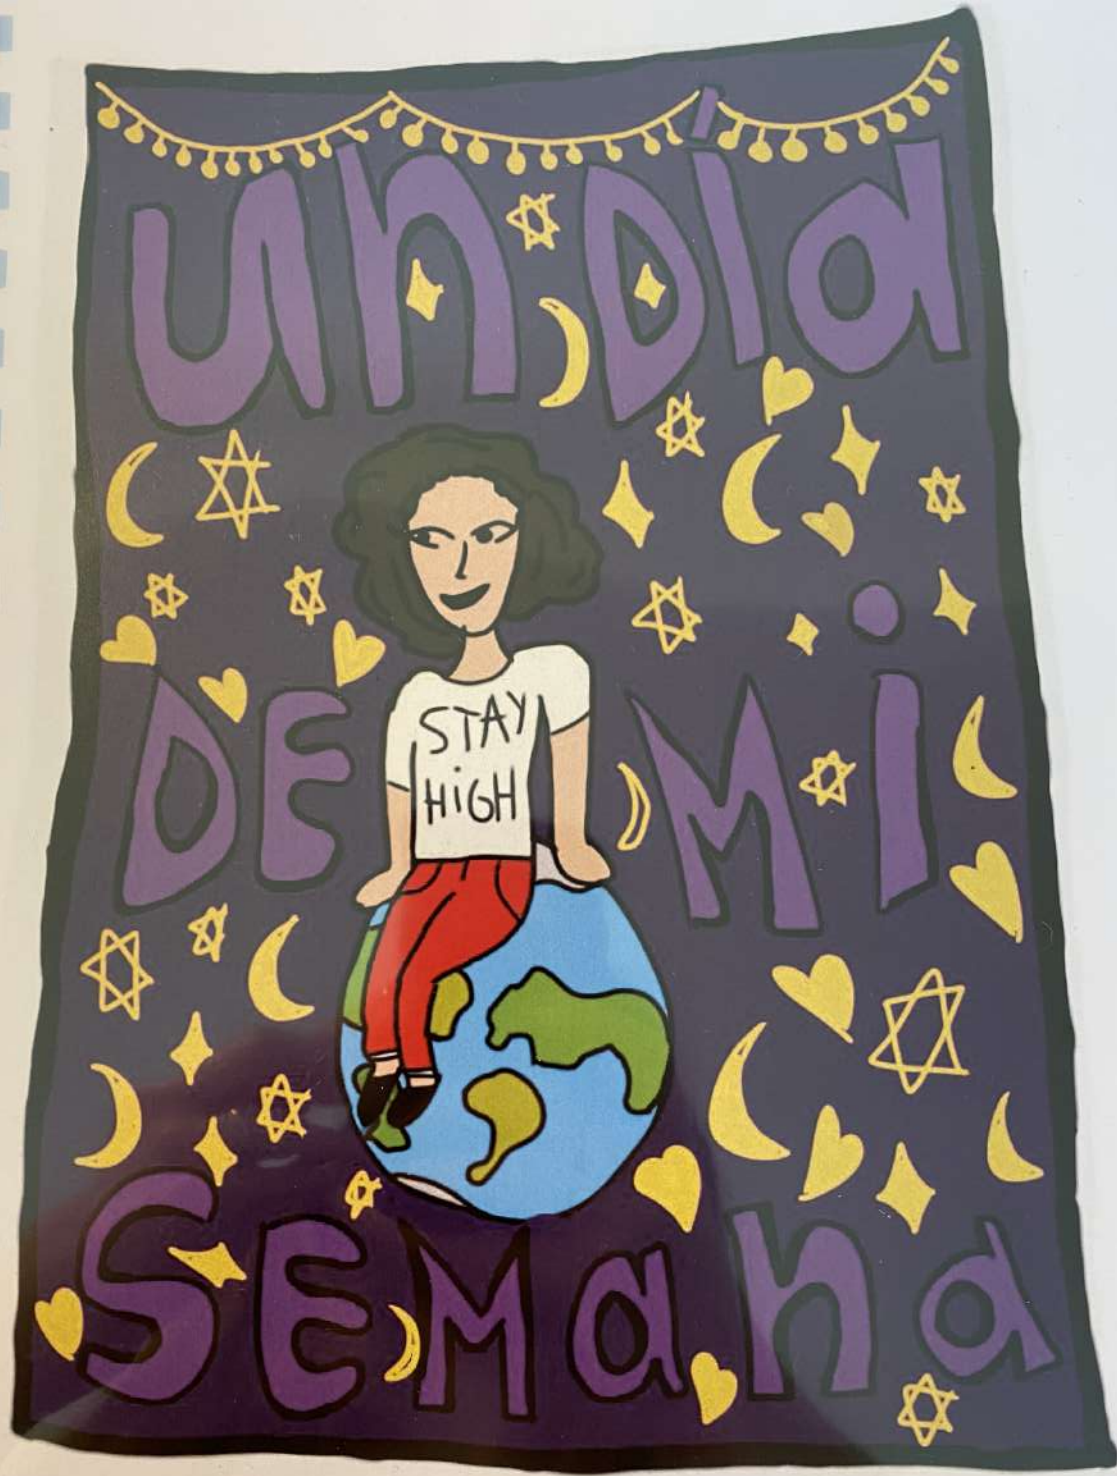 un Día
DE Mi
STAY
HiGH
SEMana